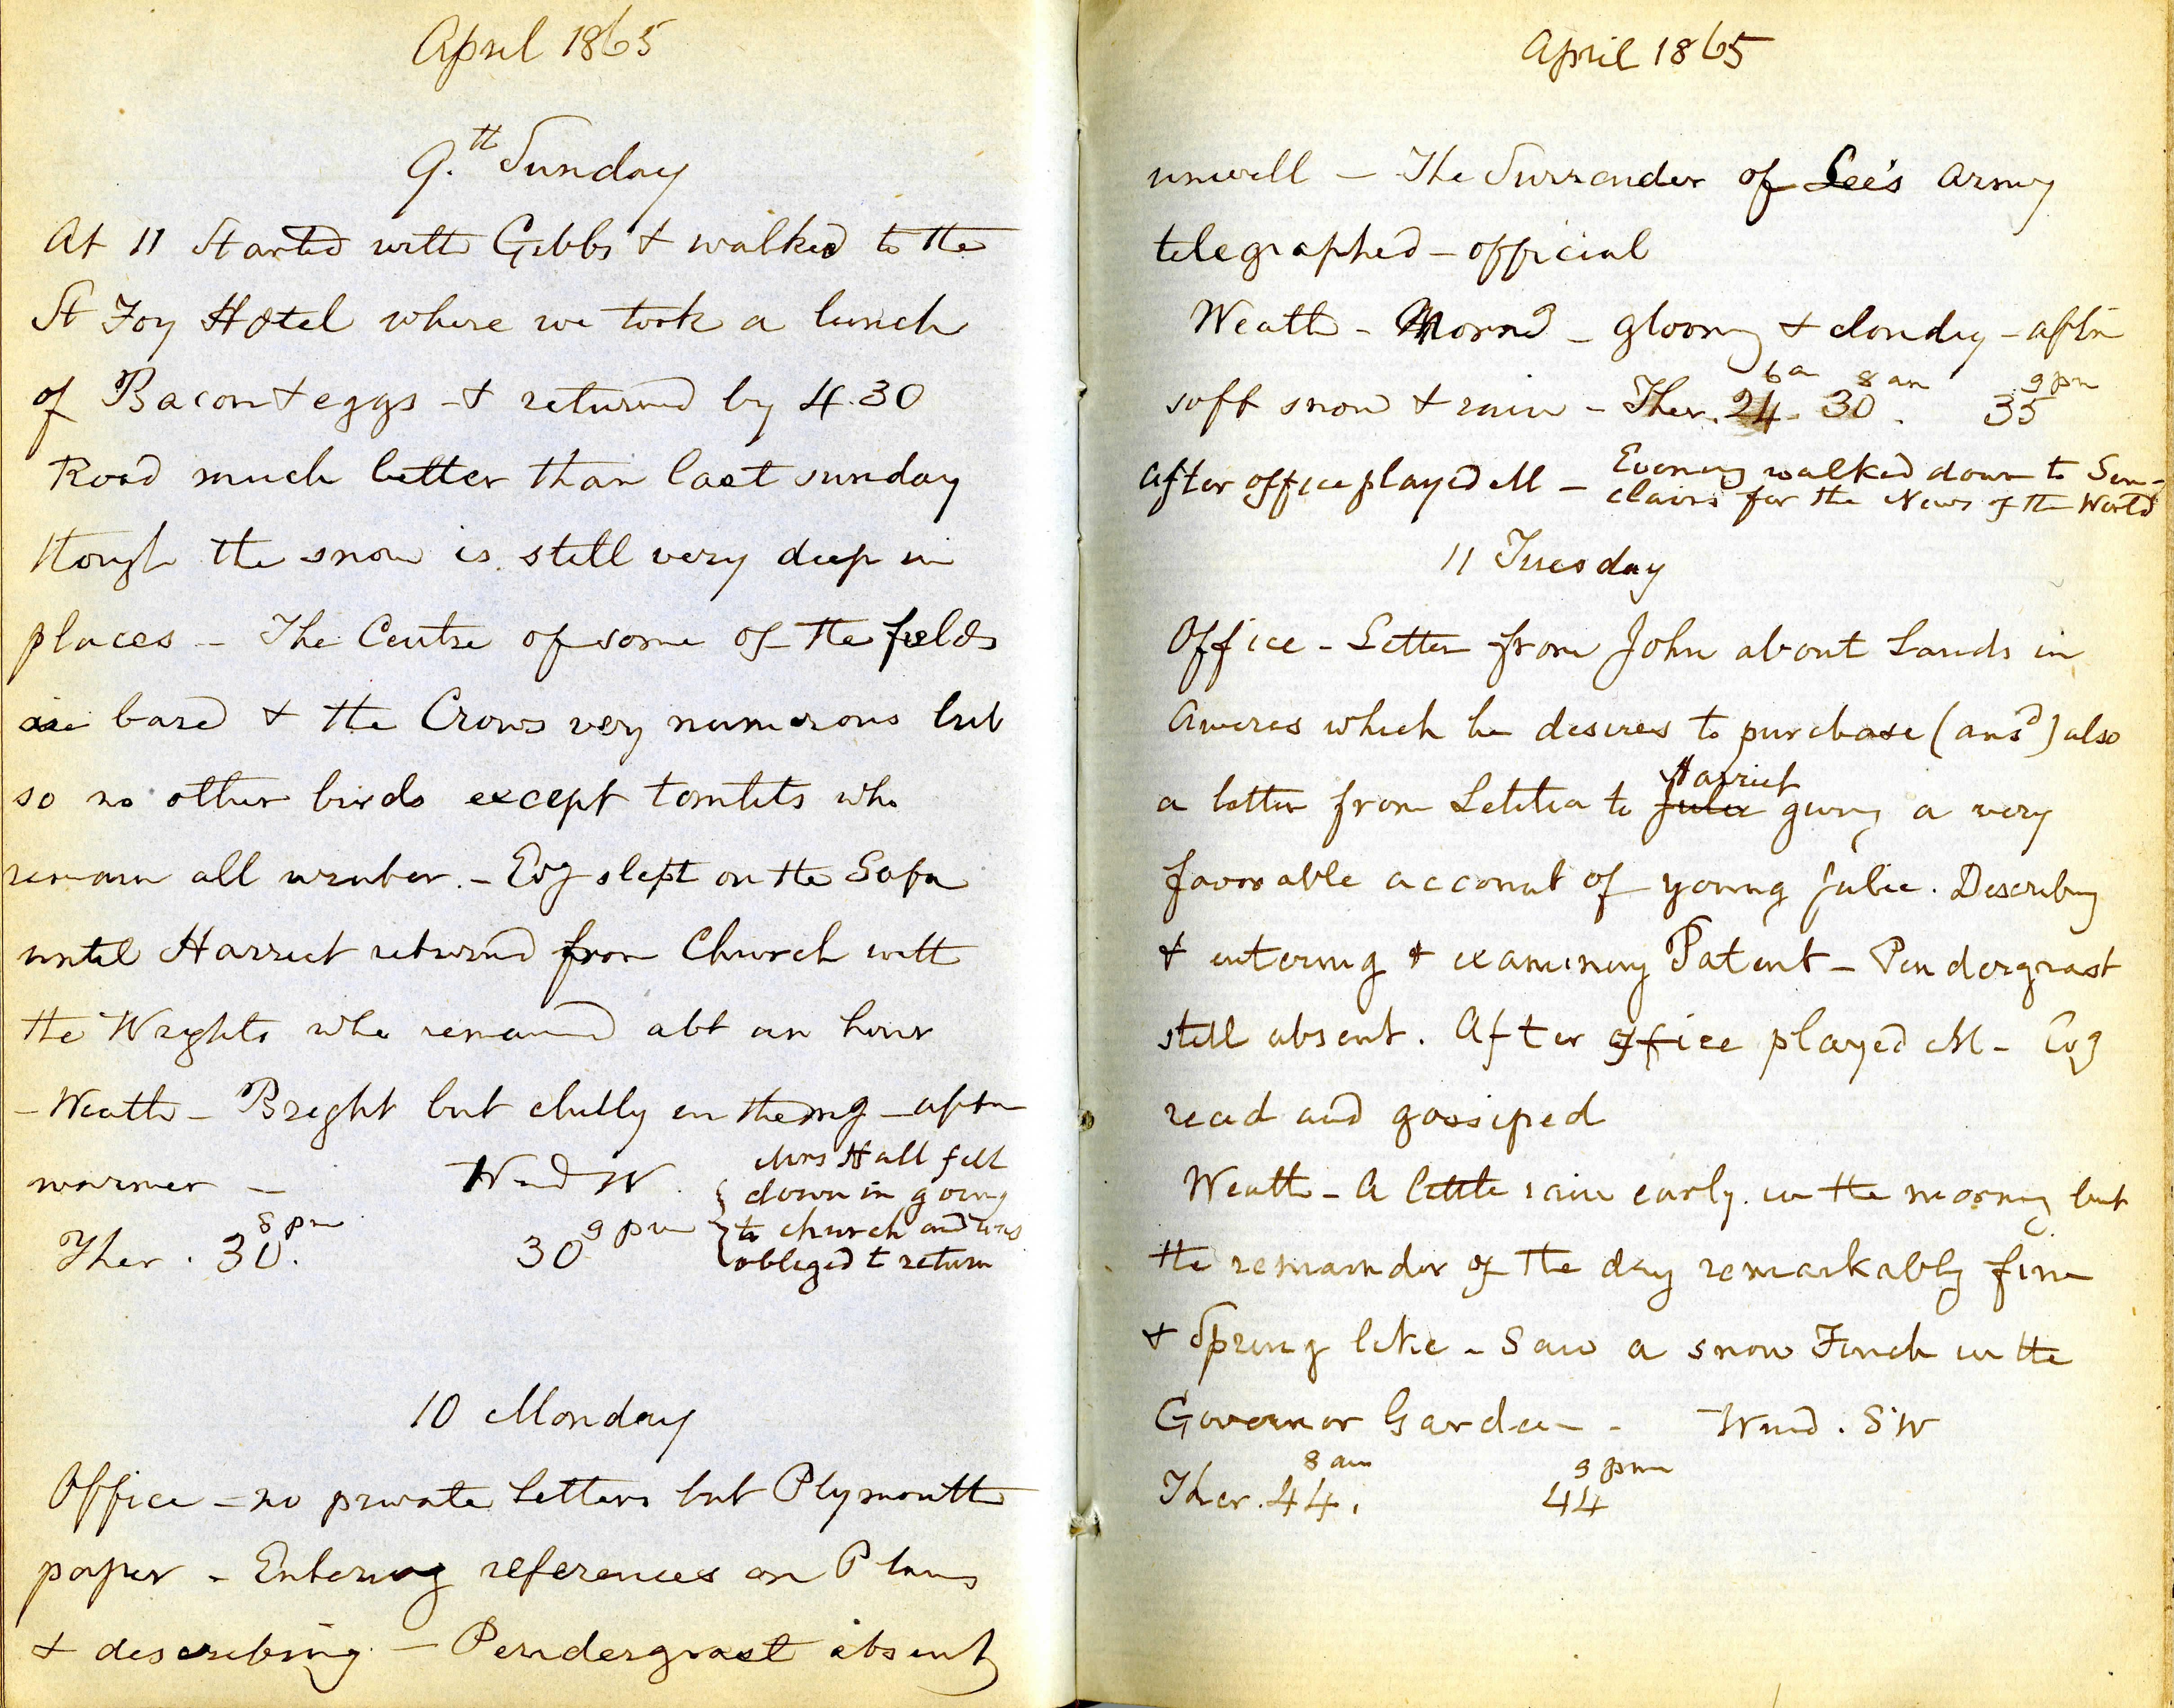 April 1865
9.th Sunday
At 11 Started with Gibbs & walked to the
St Foy Hotel where we took a lunch
of Bacon & eggs - & returned by 4.30
Road much better than last sunday
though the snow is still very deep in
places - The Centre of some of the fields
are bare & the Crows very numerous but
so no other birds except tomtits who
remain all winter. - Evg slept on the Sofa
until Harriet returned from Church with
the Wrights who remained abt an hour
- Weath - Bright but chilly in the mg - aftn
warmer - Wind W.
Mrs Hall fell
down in going
to church and was
obliged to return
8 pm 9 pm
Ther. 30. 30
10 Monday
Office - no private letters but Plymouth
paper - Entering references on Plans
& describing - Pendergrast absent
April 1865
unwell - The Surrender of Lee's army
telegraphed - official
Weath - Mornd - gloomy & cloudy - aftn
6 a 8 am 9 pm
soft snow & rain - Ther. 24. 30. 35
After office played M - Evening walked down to Sin-
clairs for the News of the World
11 Tuesday
Office - Letter from John about Lands in
Aweres which he desires to purchase (ansd) also
Harriet
a letter from Letitia to Julie giving a very
favorable account of young Julie. Describing
& entering & examining Patent - Pendergrast
still absent. After office played M - Evg
read and gossiped
Weath - A little rain early in the morning but
the remainder of the day remarkably fine
& Spring like - Saw a snow Finch in the
Governor Garden - Wind. SW
8 am 9 pm
Ther. 44. 44